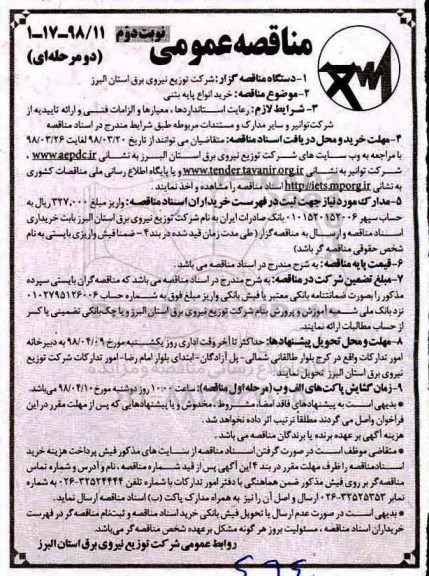 مناقصه عمومی
نوبت دوم
۹۸/۱۱-۱۷-۱
(دو مرحله‌ای)
۱-دستگاه مناقصه گزار: شرکت توزیع نیروی برق استان البرز
۲-موضوع مناقصه: خرید انواع پایه بتنی
۳- شرایط لازم: رعایت استانداردها، معیارها و الزامات فنی و ارائه تاییدیه از
شرکت توانیر و سایر مدارک و مستندات مربوطه طبق شرایط مندرج در اسناد مناقصه
۴-مهلت خرید و محل دریافت اسناد مناقصه: متقاضیان می توانند از تاریخ ۹۸/۰۳/۲۰ لغایت ۹۸/۰۳/۲۶
با مراجعه به وب سایت های شرکت توزیع نیروی برق استان البرز به نشانی www.aepdc.ir ،
شرکت توانیر به نشانی www.tender.tavanir.org.ir و یا پایگاه اطلاع رسانی ملی مناقصات کشوری
به نشانی http://iets.mporg.ir اسناد مناقصه را مشاهده و اخذ نمایند.
۵-مدارک مورد نیاز جهت ثبت در فهرست خریداران اسناد مناقصه: واریز مبلغ ۳۲۷،۰۰۰ ریال به
حساب سپهر ۰۱۰۱۵۲۰۱۵۲۰۰۶ بانک صادرات ایران به نام شرکت توزیع نیروی برق استان البرز بابت خریداری
اسناد مناقصه و ارسال به مناقصه گزار (طی مدت زمان قید شده در بند ۴- ضمنا فیش واریزی بایستی به نام
شخص حقوقی مناقصه گر باشد)
۶-قیمت پایه مناقصه: به شرح مندرج در اسناد مناقصه می باشد.
۷-مبلغ تضمین شرکت در مناقصه: به شرح مندرج در اسناد مناقصه می باشد که مناقصه گران بایستی سپرده
مذکور را بصورت ضمانتنامه بانکی معتبر یا فیش بانکی واریز مبلغ فوق به شماره حساب ۰۱۰۲۷۹۵۱۲۶۰۰۶
نزد بانک ملی شعبه آموزش و پرورش بنام شرکت توزیع نیروی برق استان البرز و یا چک بانکی تضمینی یا کسر
از حساب مطالبات ارائه نمایند.
۸-مهلت و محل تحویل پیشنهادها: حداکثر تا آخر وقت اداری روز یکشنبه مورخ ۹۸/۰۴/۰۹ به دبیرخانه
امور تدارکات واقع در کرج بلوار طالقانی شمالی- پل آزادگان - ابتدای بلوار امام رضا- امور تدارکات شرکت توزیع
نیروی برق استان البرز تحویل نمایند
۹-زمان گشایش پاکت های الف و ب (مرحله اول مناقصه): ساعت ۱۰:۰۰ روز دوشنبه مورخ ۹۸/۰۴/۱۰ می باشد.
* بدیهی است به پیشنهادهای فاقد امضاء، مشروط، مخدوش و یا پیشنهادهایی که پس از مهلت مقرر در این
فراخوان واصل می گردند مطلقا ترتیب اثر داده نخواهد شد.
هزینه آگهی بر عهده برنده یا برندگان مناقصه می باشد.
* متقاضی موظف است در صورت گرفتن اسناد مناقصه از سایت های مذکور فیش پرداخت هزینه خرید
اسناد مناقصه را ظرف مهلت مقرر در بند ۴ این آگهی پس از قید شماره مناقصه، نام و آدرس و شماره تماس
مناقصه گر بر روی فیش مذکور ضمن هماهنگی با دفتر امور تدارکات با شماره تلفن ۳۲۵۲۴۴۴۴-۰۲۶ به شماره
نمابر ۳۲۵۲۵۳۵۳-۰۲۶ ارسال و اصل آن را نیز به همراه مدارک پاکت (ب) اسناد مناقصه ارسال نماید.
* بدیهی است در صورت عدم ارسال یا تحویل فیش بانکی خرید اسناد مناقصه و ثبت نام مناقصه گر در فهرست
خریداران اسناد مناقصه، مسئولیت بروز هر گونه مشکل بر عهده شخص مناقصه گر می باشد.
روابط عمومی شرکت توزیع نیروی برق استان البرز